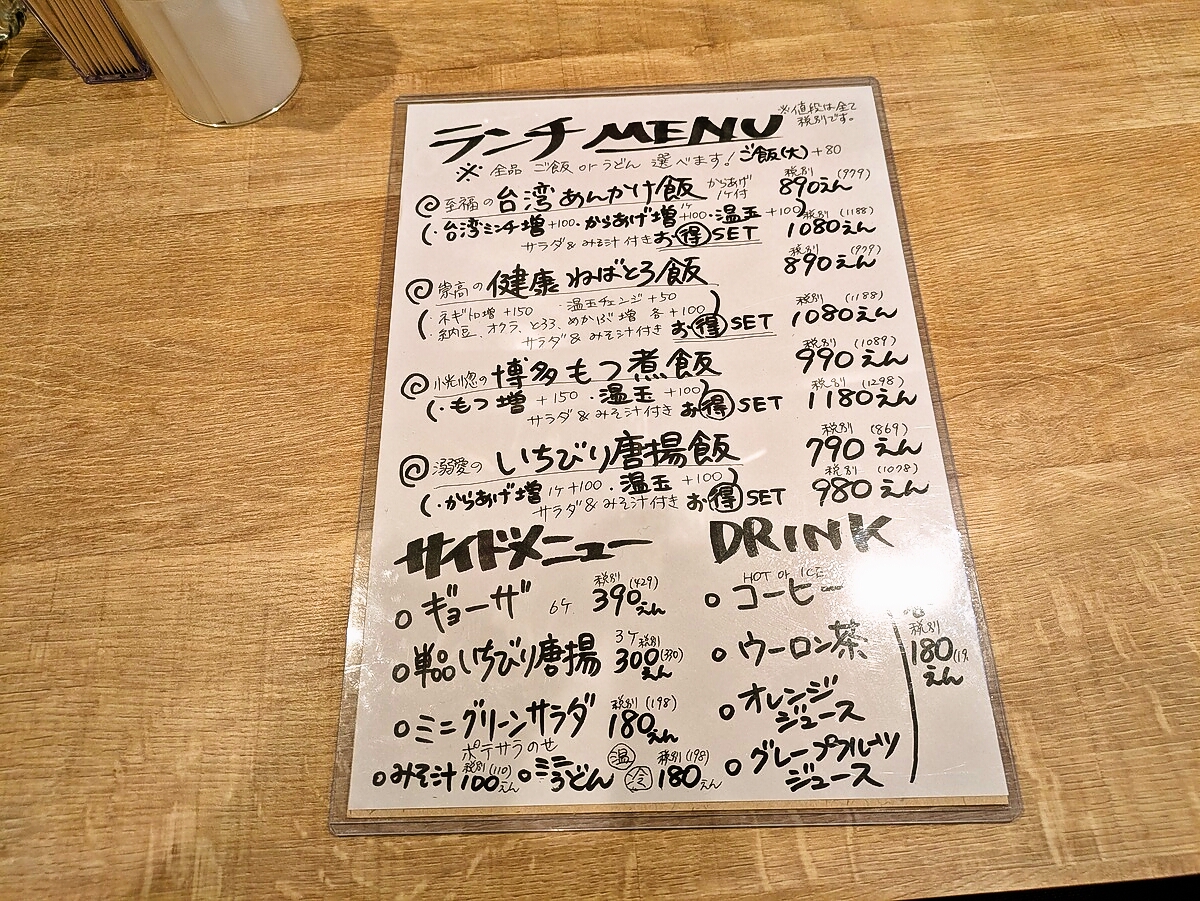 ランチ MENU ※値段は全て税別です。
※ 全品 ご飯 or うどん 選べます! ご飯(大) +80
至福の 台湾あんかけ飯 からあげ1ケ付 税別 (979) 890えん
(・台湾ミンチ増 +100・からあげ増 1ケ +100・温玉 +100)
サラダ & みそ汁 付き お得SET 税別 (1188) 1080えん
崇高の 健康ねばとろ飯 税別 (979) 890えん
(・ネギトロ増 +150 ・温玉チェンジ +50
・納豆、オクラ、とろろ、めかぶ増 各 +100)
サラダ & みそ汁付き お得SET 税別 (1188) 1080えん
恍惚の 博多もつ煮飯 税別 (1089) 990えん
(・もつ増 +150 ・温玉 +100)
サラダ & みそ汁付き お得SET 税別 (1298) 1180えん
溺愛の いちびり唐揚飯 税別 (869) 790えん
(・からあげ増 1ケ +100 ・温玉 +100)
サラダ & みそ汁付き お得SET 税別 (1078) 980えん
サイドメニュー
ギョーザ 6ケ 税別 (429) 390えん
単品いちびり唐揚 3ケ 税別 (330) 300えん
ミニグリーンサラダ 税別 (198) 180えん
ポテサラのせ
みそ汁 税別 (110) 100えん
ミニうどん 温 冷 税別 (198) 180えん
DRINK
HOT or ICE
コーヒー
ウーロン茶
オレンジジュース
グレープフルーツジュース
税別
180えん